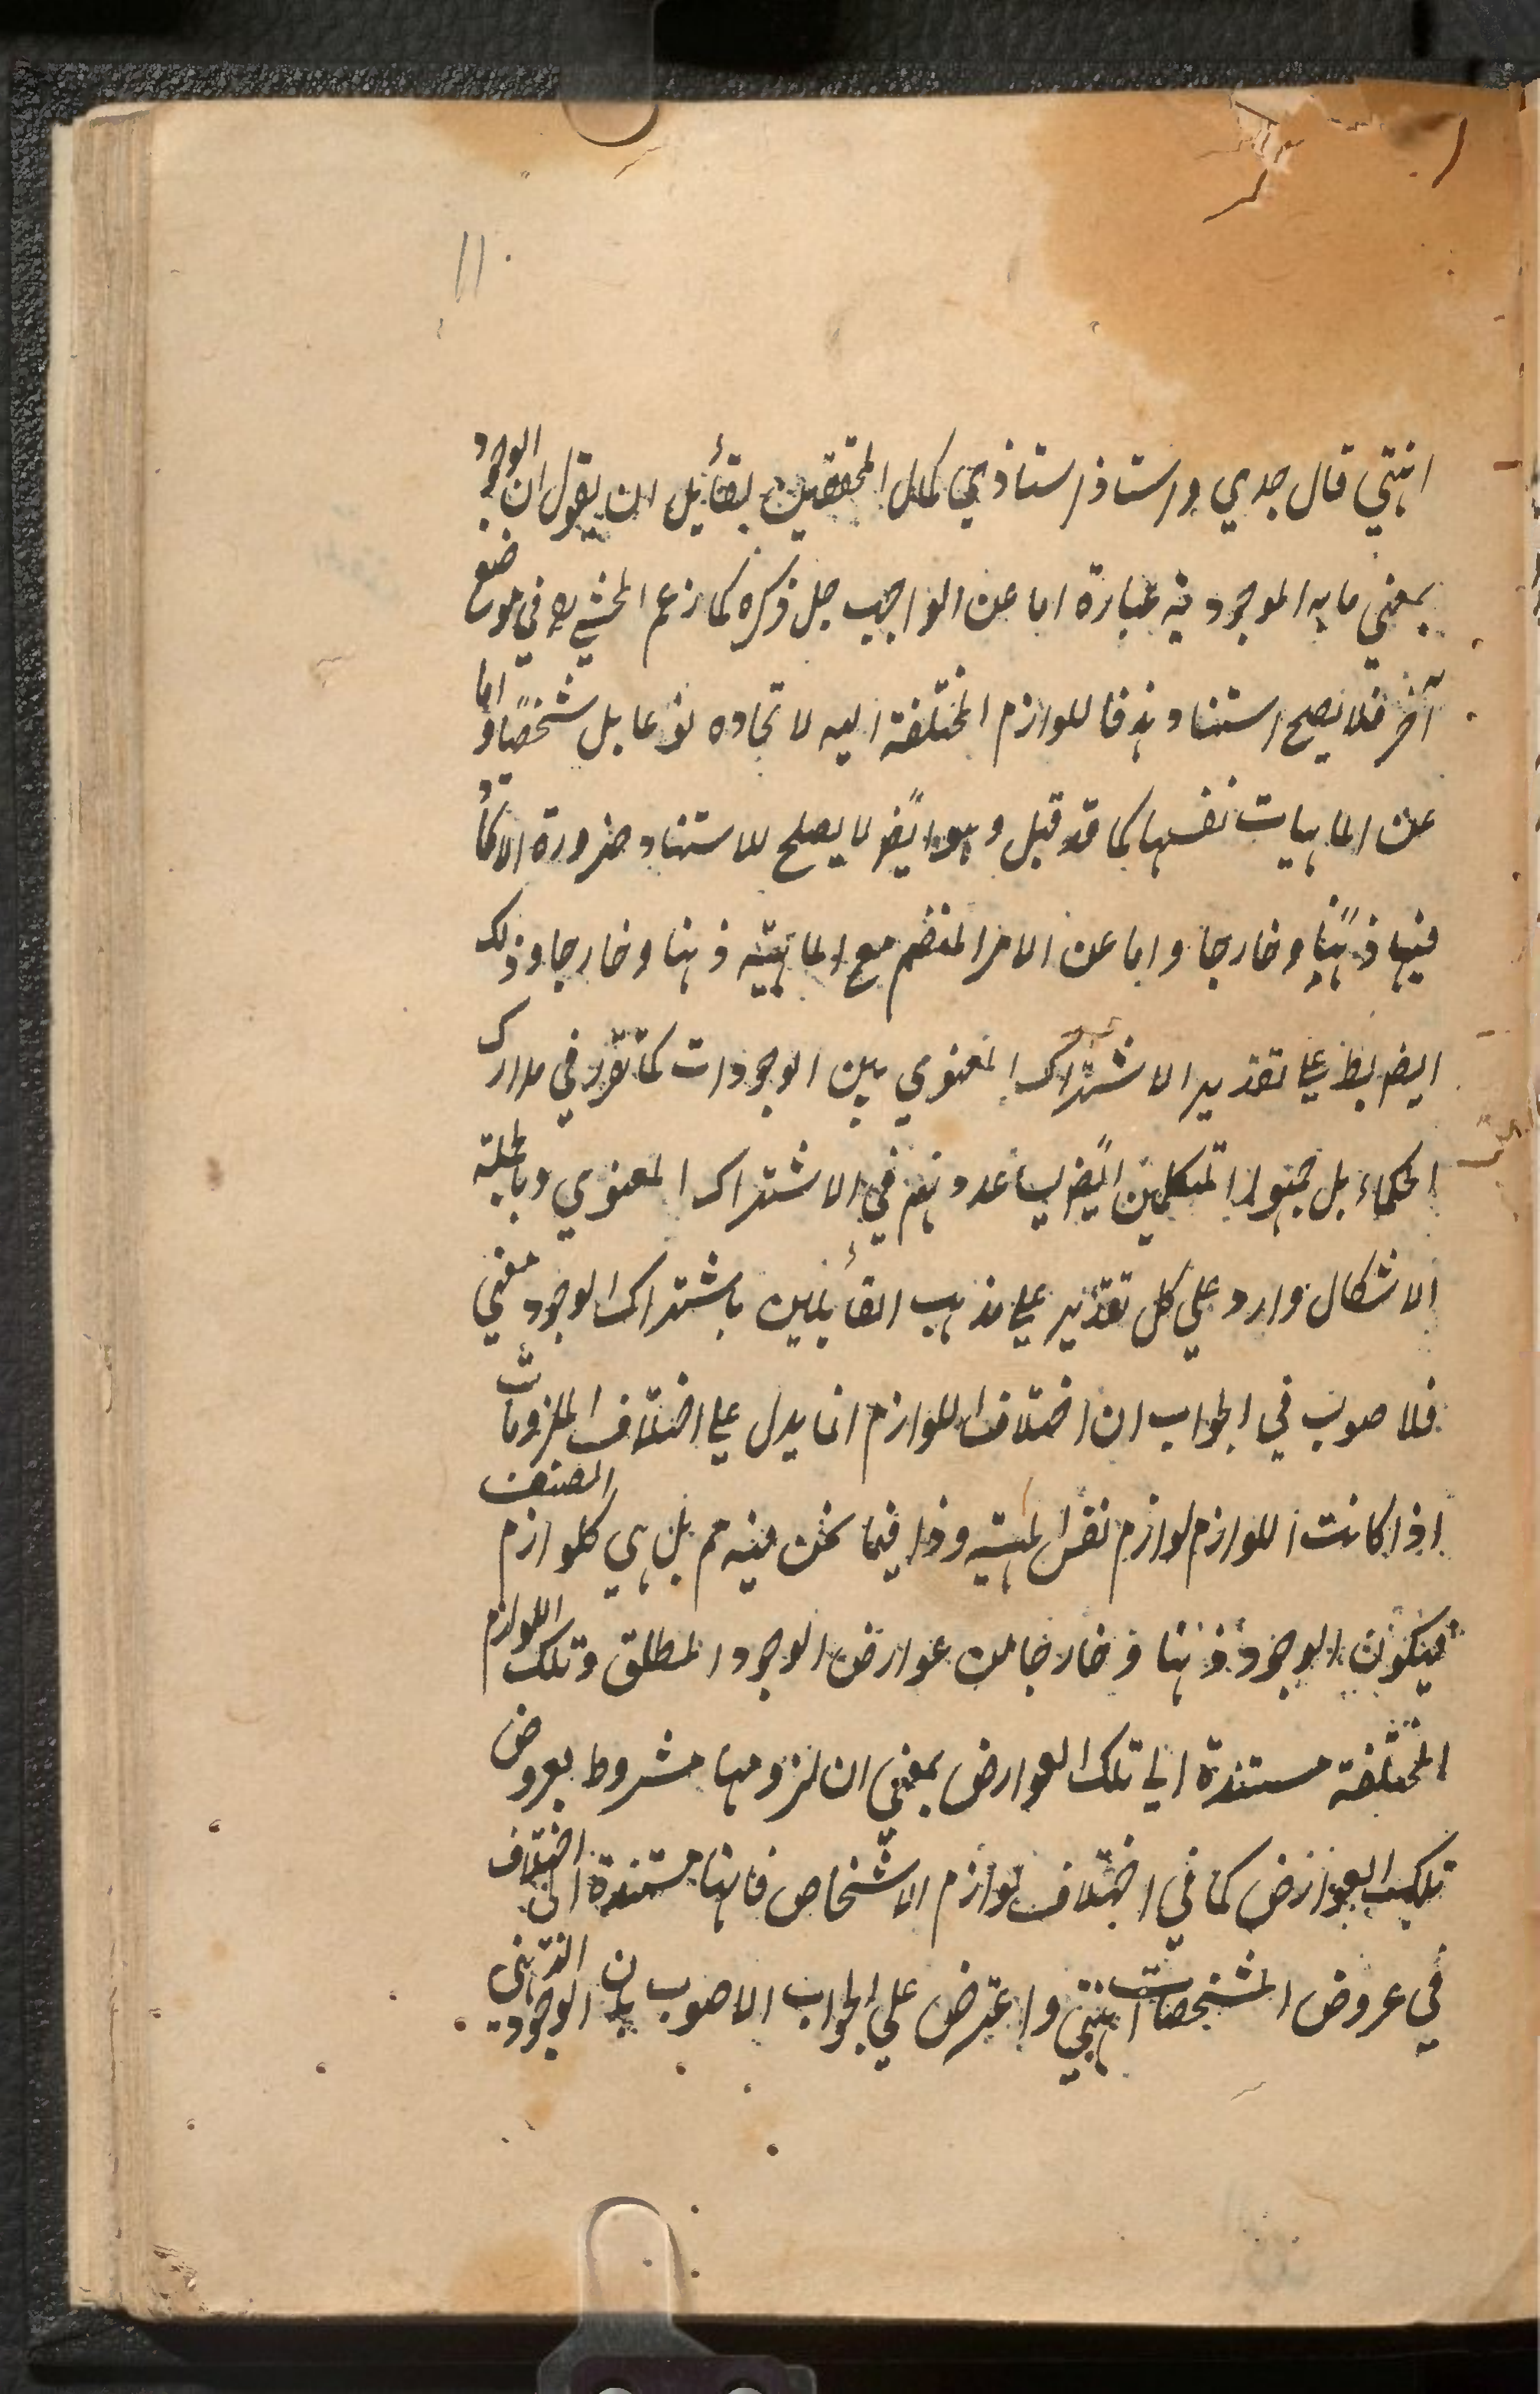 ١١
انتهي قال جدي واستاذ استاذي كمال المحققين لقائل ان يقول ان الوجود
بمعني ما به الموجودية عبارة اما عن الواجب جل ذكره كما زعم المحشي ره في موضع
آخر فلا يصح استناد هذه اللوازم المختلفة اليه لاتحاده نوعا بل شخصًا واما
عن الماهيات نفسها كما قد قيل وهو ايضًا لا يصلح للاستناد ضرورة الاتحاد
فيها ذهنًا وخارجا واما عن الامر المنضم مع الماهية ذهنا وخارجا وذلك
ايضا بط علي تقدير الاشتراك المعنوي بين الوجودات كما تقرر في مدارك
الحكماء بل جمهور المتكلمين ايضًا يساعدونهم في الاشتراك المعنوي وبالجملة
الاشكال وارد علي كل تقدير علي مذهب القائلين باشتراك الوجود معني
فلاصوب في الجواب ان اختلاف اللوازم انما يدل علي اختلاف الملزومات
اذا كانت اللوازم لوازم نفس المهية وذا فيما نحن فيه مم بل هي كلوازم المصنف
فيكون الوجود ذهنا وخارجا من عوارض الوجود المطلق وتلك اللوازم
المختلفة مستندة الي تلك العوارض بمعني ان لزومها مشروط بعروض
تلك العوارض كما في اختلاف لوازم الاشخاص فانها مستندة الي اختلاف
في عروض المشخصات انتهي واعترض علي الجواب الاصوب بان الوجود الذهني